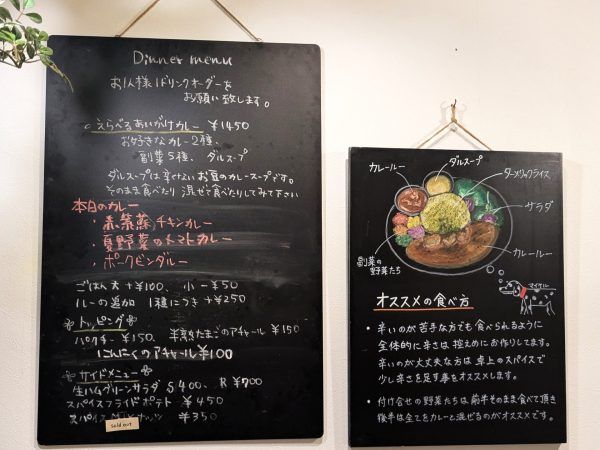 Dinner menu
お1人様1ドリンクオーダーを
お願い致します。
えらべるあいがけカレー ¥1450
お好きなカレー2種、
副菜5種、ダルスープ
ダルスープは辛くないお豆のカレースープです。
そのまま食べたり 混ぜて食べたりしてみて下さい
本日のカレー
・赤紫蘇チキンカレー
・夏野菜のトマトカレー
・ポークビンダルー
ごはん 大 +¥100、 小 -¥50
ルーの追加 1種につき +¥250
トッピング
パクチー ¥150、 半熟たまごのアチャール ¥150
にんにくのアチャール ¥100
サイドメニュー
生ハムグリーンサラダ S 400、 R ¥700
スパイスフライドポテト ¥450
スパイス ナッツ ¥350
sold out
カレールー
ダルスープ
ターメリックライス
サラダ
カレールー
副菜の
野菜たち
マイケル
オススメの食べ方
・辛いのが苦手な方でも食べられるように
全体的に辛さは控えめにお作りしてます。
辛いのが大丈夫な方は卓上のスパイスで
少し辛さを足す事をオススメします。
・付け合せの野菜たちは前半そのまま食べて頂き
後半は全てをカレーと混ぜるのがオススメです。